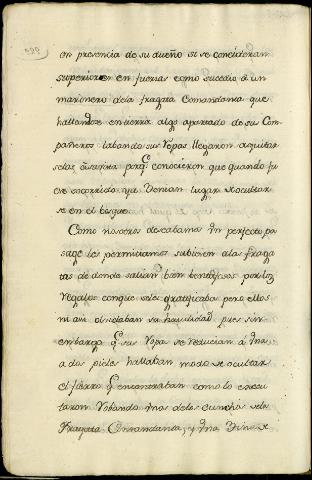 en presencia de su dueño si se consideran
superiores en fuerzas como sucedio á un
marinero dela fragata Comandanta que
hallandose en tierra algo apartado de su Com
pañeros labando sus Ropas llegaron aquitar
selas porq. conocieron que quando fu
ese socorrido ya tenian lugar de ocultar
se en el bosque.
Como nosotros deseabamos en perfecta pa
sage les permitiamos subiesen alas fraga
tas de donde salian bien beneficiosos por los
Regalos conque seles gratificaba pero ellos
ni aun olvidaban su havilidad pues sin
embargo q. sus Ropa se reducian á una
ados pieles hallaban modo de ocultar
el fierro q. encontraban como lo execu
taron Robando una delas cuncha dela
Fragata Comandanta, y una